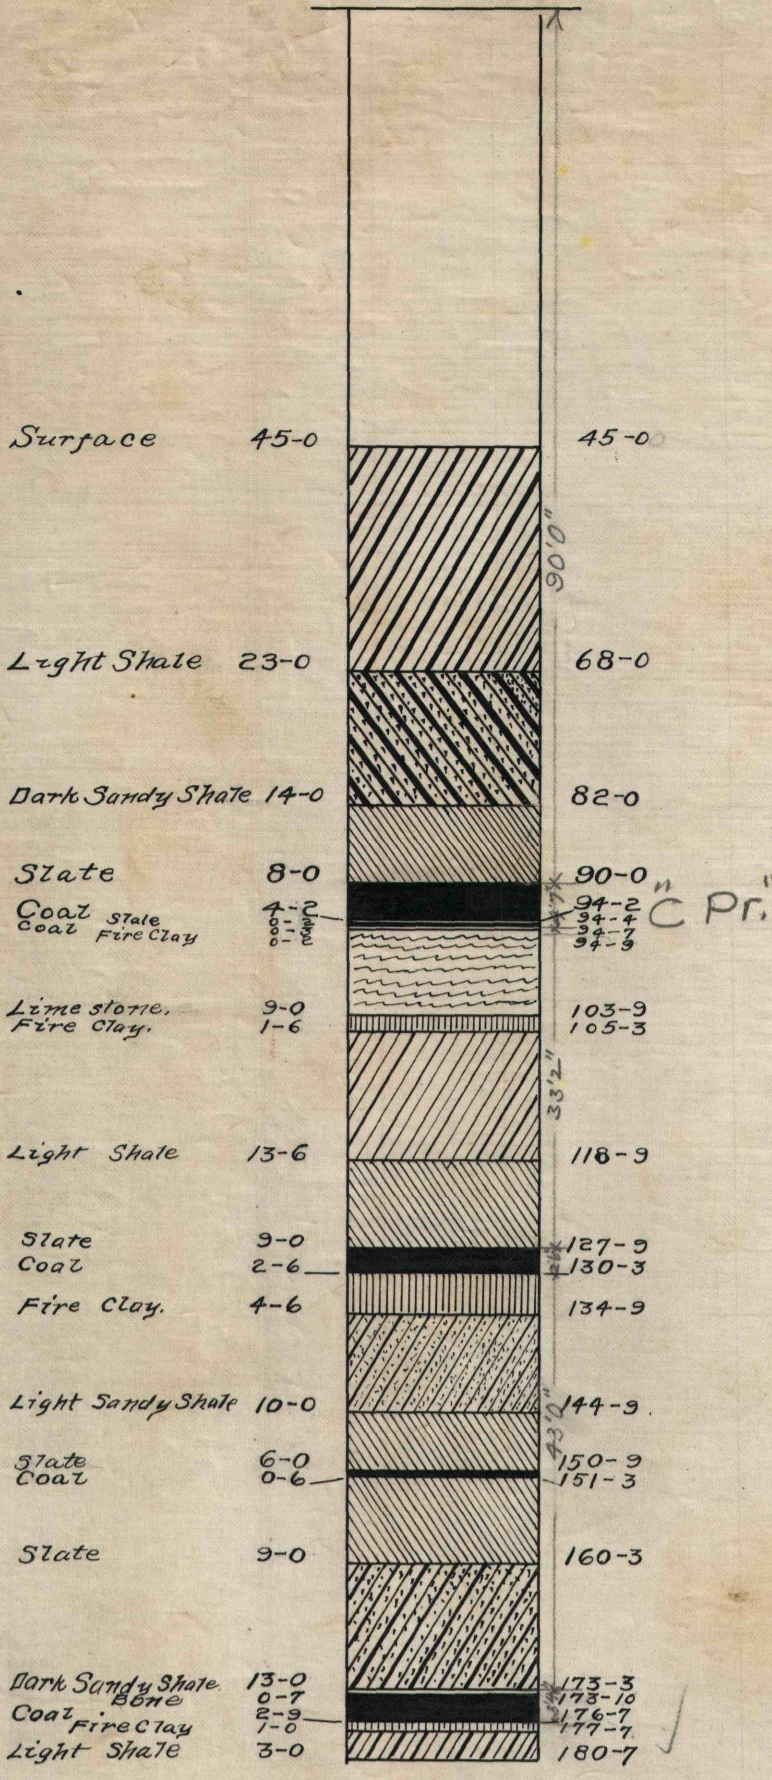 Surface 45-0 45-0
90'0"
Light Shale 23-0 68-0
Dark Sandy Shale 14-0 82-0
Slate 8-0 90-0
Coal 4-2 94-2 "C Pr."
Slate 0-2 94-4
Coal 0-3 94-7
Fire Clay 0-2 94-9
Lime stone. 9-0 103-9
Fire Clay. 1-6 105-3
33'2"
Light Shale 13-6 118-9
Slate 9-0 127-9
Coal 2-6 130-3
Fire Clay. 4-6 134-9
Light Sandy Shale 10-0 144-9
43'0"
Slate 6-0 150-9
Coal 0-6 151-3
Slate 9-0 160-3
Dark Sandy Shale 13-0 173-3
Bone 0-7 173-10
Coal 2-9 176-7
Fire Clay 1-0 177-7
Light Shale 3-0 180-7